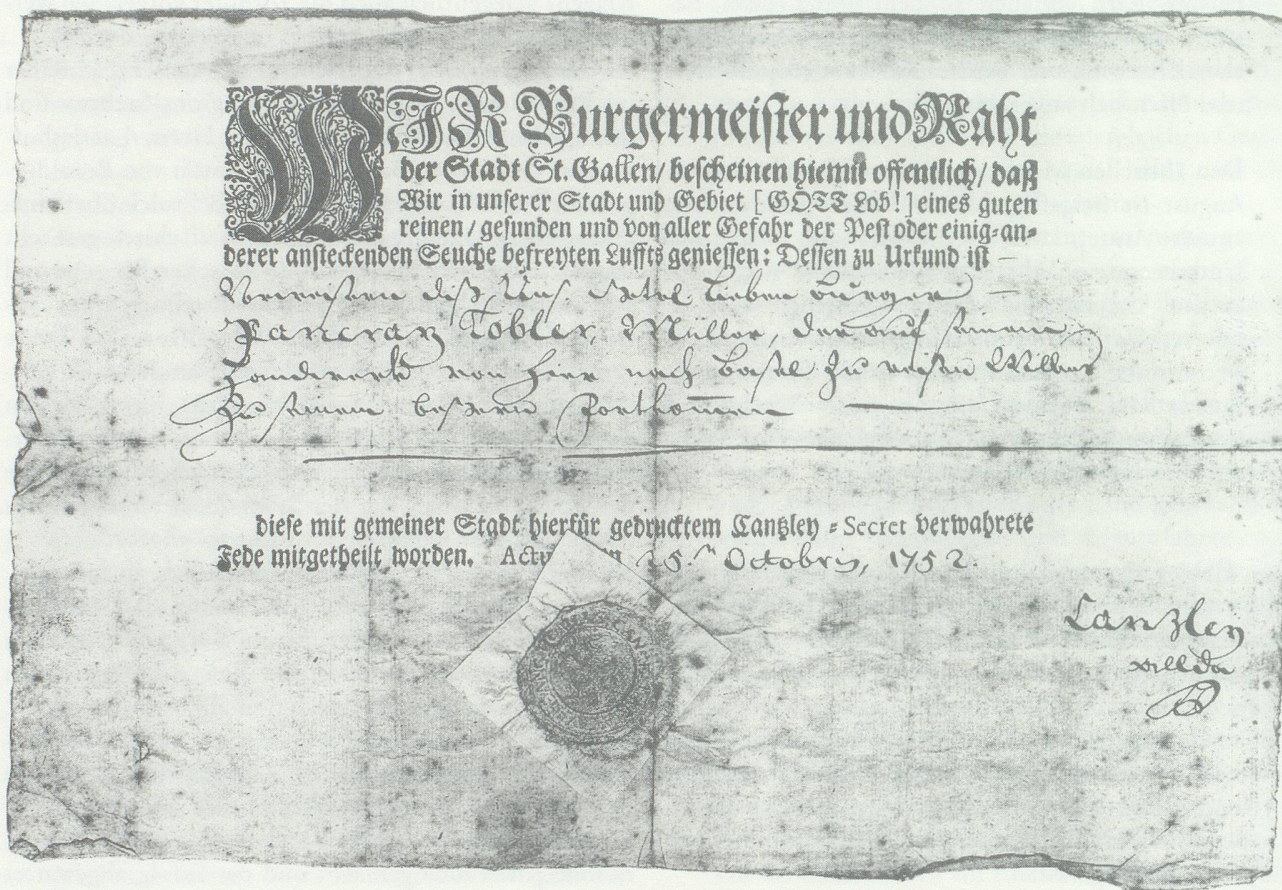 WIR Burgermeister und Raht
der Stadt St. Gallen/ bescheinen hiemit offentlich/ daß
Wir in unserer Stadt und Gebiet [GOTT Lob!] eines guten
reinen/ gesunden und von aller Gefahr der Pest oder einig-an-
derer ansteckenden Seuche befreyten Luffts geniessen: Dessen zu Urkund ist —
diß Lieben Burger —
Pancraz Tobler, Müller, der auf seinem
Handwerk von hier nach Basel zu reisen Willens
Zu seinem bessern Fortkom̄en —
diese mit gemeiner Stadt hierfür gedrucktem Cantzley - Secret verwahrete
Fede mitgetheilt worden. Actu 25.ⁿ Octobris, 1752.
Canzley